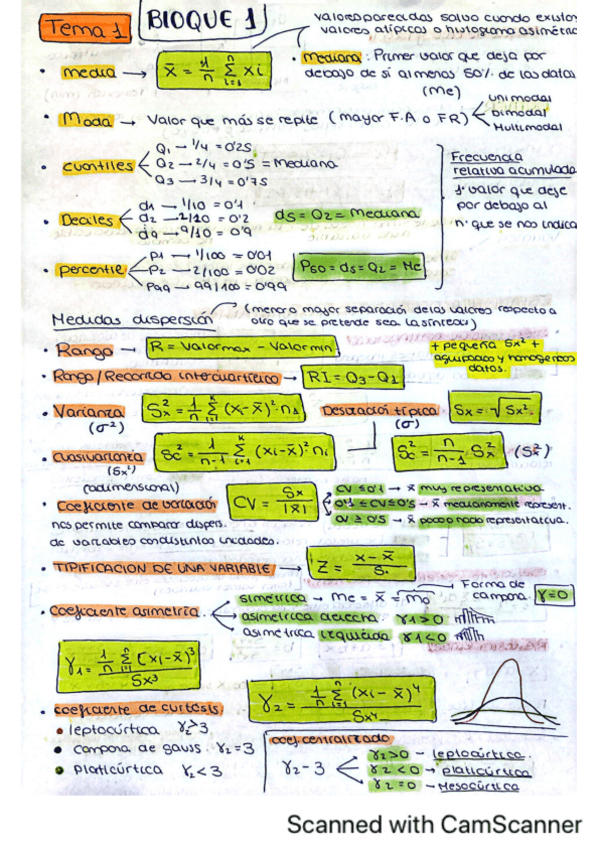 Tema 1 BLOQUE 1
valores parecidos salvo cuando existen
valores atípicos o histograma asimétric
• media → x̄ = 1/n Σ(i=1, n) xi
• Mediana: Primer valor que deja por
debajo de sí al menos 50% de los datos
(Me)
• Moda → Valor que más se repite (mayor F.A o FR) < unimodal
bimodal
Multimodal
• cuantiles < Q1 → 1/4 = 0'25
Q2 → 2/4 = 0'5 = Mediana
Q3 → 3/4 = 0'75
Frecuencia
relativa acumulada
1º valor que deje
por debajo al
nº que se nos indica
• Deciles < d1 → 1/10 = 0'1
d2 → 2/10 = 0'2
d9 → 9/10 = 0'9
d5 = Q2 = Mediana
• percentil < P1 → 1/100 = 0'01
P2 → 2/100 = 0'02
P99 → 99/100 = 0'99
P50 = d5 = Q2 = Me
Medidas dispersión (menor o mayor separación de los valores respecto a
otro que se pretende sea la síntesis)
• Rango → R = Valor max - Valor min
+ pequeña Sx² +
agrupados y homogéneos
datos.
• Rango / Recorrido intercuartílico → RI = Q3 - Q1
• Varianza (σ²) Sx² = 1/n Σ(i=1, k) (xi - x̄)² · ni
Desviación típica (σ) Sx = √Sx².
• cuasivarianza (Sx²) Sc² = 1/n-1 Σ(i=1, k) (xi - x̄)² ni
Sc² = n/n-1 Sx² (Sx²)
(adimensional)
• Coeficiente de variación CV = Sx/|x̄|
CV ≤ 0'1 → x̄ muy representativa.
0'1 ≤ CV ≤ 0'5 → x̄ medianamente represent.
CV ≥ 0'5 → x̄ poco o nada representativa.
nos permite comparar dispers.
de variables con distintas unidades.
• TIPIFICACION DE UNA VARIABLE → Z = x - x̄/S.
• coeficiente asimetría < simétrica → Me = x̄ = Mo → Forma de
campana. γ = 0
asimétrica derecha γ1 > 0
asimétrica izquierda γ1 < 0
γ1 = 1/n Σ(i=1, n) (xi - x̄)³/Sx³
• coeficiente de curtosis γ2 = 1/n Σ(i=1, n) (xi - x̄)⁴/Sx⁴
• leptocúrtica γ2 > 3
• campana de gauss γ2 = 3
• platicúrtica γ2 < 3
coef centralizado
γ2 - 3 < γ2 > 0 - leptocúrtica.
γ2 < 0 → platicúrtica
γ2 = 0 - Mesocúrtica
Scanned with CamScanner